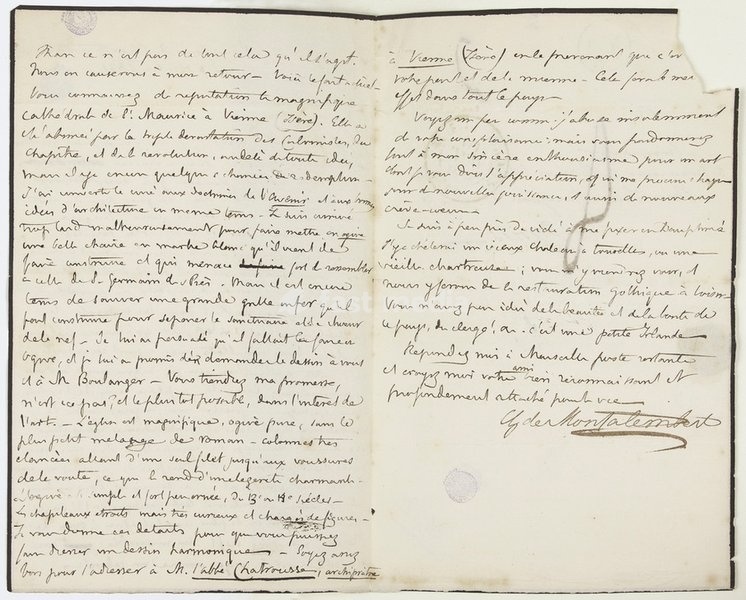 Mais ce n'est pas de tout cela qu'il s'agit.
Nous en causerons à mon retour — Voici le fait actuel.
Vous connaissez de réputation la magnifique
cathédrale de St Maurice à Vienne (Isère). Elle a
été abimée par la triple dévastation des Calvinistes, du
chapitre, et de la révolution, au delà de toute idée,
mais il y a encore quelque chance de rédemption —
J'ai converti le curé aux doctrines de l'Avenir et à nos
idées d'architecture en même tems — Je suis arrivé
trop tard malheureusement pour faire mettre en ogive
une belle chaire en marbre blanc qu'il vient de
faire construire et qui menace fort de ressembler
à celle de St Germain des Près. Mais il est encore
tems de sauver une grande grille en fer qu'il
veut construire pour séparer le sanctuaire et le chœur
de la nef — Je lui ai persuadé qu'il fallait la faire en
ogive, et je lui ai promis de demander le dessin à vous
et à M. Boulanger — Vous tiendrez ma promesse,
n'est ce pas? et le plutot possible, dans l'intérêt de
l'art — L'église est magnifique, ogive pure, sans le
plus petit mélange de roman — colonnes très
élancées allant d'un seul filet jusqu'aux voussures
de la voûte, ce qui le rend d'une légèreté charmante.
L'ogive simple et fort peu ornée, du 13e au 14e siècles —
Les chapiteaux étroits mais très curieux et chargés de figures —
Je vous donne ces détails pour que vous puissiez
faire dresser un dessin harmonique — Soyez assez
bon pour l'adresser à M. l'abbé Chatrousse, archiprêtre
à Vienne (Isère) en le prévenant que c'est
votre part et de la mienne — Cela fera le meilleur
effet dans tout le pays —
Voyez un peu comme j'abuse insolemment
de votre complaisance: mais vous pardonnerez
tout à mon sincère enthousiasme pour un art
dont je vous dois l'appréciation, et qui me procure chaque
jour de nouvelles jouissances, et aussi de nouveaux
crève-cœur —
Je suis à peu près décidé à me fixer en Dauphiné
J'y achèterai un vieux chateau à tourelles, ou une
vieille chartreuse; vous y viendrez voir, et
nous y ferons de la restauration gothique à loisir —
Vous n'avez pas idée de la beauté et de la bonté de
ce pays, du clergé, &c — c'est une petite Irlande
Répondez moi à Marseille poste restante
et croyez moi votre ami bien reconnaissant et
profondement attaché pour la vie
Ch de Montalembert